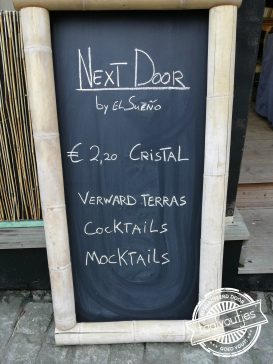 NEXT DOOR
by EL SUEÑO
€ 2,20 CRISTAL
VERWARD TERRAS
COCKTAILS
MOCKTAILS
taalvoutjes